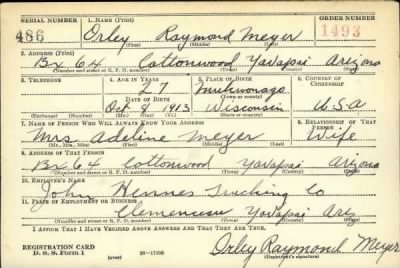 SERIAL NUMBER 1. NAME (Print) ORDER NUMBER
486 Orley Raymond Meyer 1493
(First) (Middle) (Last)
2. ADDRESS (Print)
Bx 64 Cottonwood Yavapai Arizona
(Number and street or R. F. D. number) (Town) (County) (State)
3. TELEPHONE 4. AGE IN YEARS 5. PLACE OF BIRTH 6. COUNTRY OF CITIZENSHIP
27 Mukwonago
DATE OF BIRTH (Town or county)
Oct 9 1913 Wisconsin U.S.A
(Exchange) (Number) (Mo.) (Day) (Yr.) (State or country)
7. NAME OF PERSON WHO WILL ALWAYS KNOW YOUR ADDRESS 8. RELATIONSHIP OF THAT PERSON
Mrs Adeline Meyer Wife
(Mr., Mrs., Miss) (First) (Middle) (Last)
9. ADDRESS OF THAT PERSON
Bx 64 Cottonwood Yavapai Arizona
(Number and street or R. F. D. number) (Town) (County) (State)
10. EMPLOYER'S NAME
John Hennes Trucking Co
11. PLACE OF EMPLOYMENT OR BUSINESS
Yavapai Ariz
(Number and street or R. F. D. number) (Town) (County) (State)
I AFFIRM THAT I HAVE VERIFIED ABOVE ANSWERS AND THAT THEY ARE TRUE.
REGISTRATION CARD
D. S. S. Form 1 (over) Orley Raymond Meyer
(Registrant's signature)